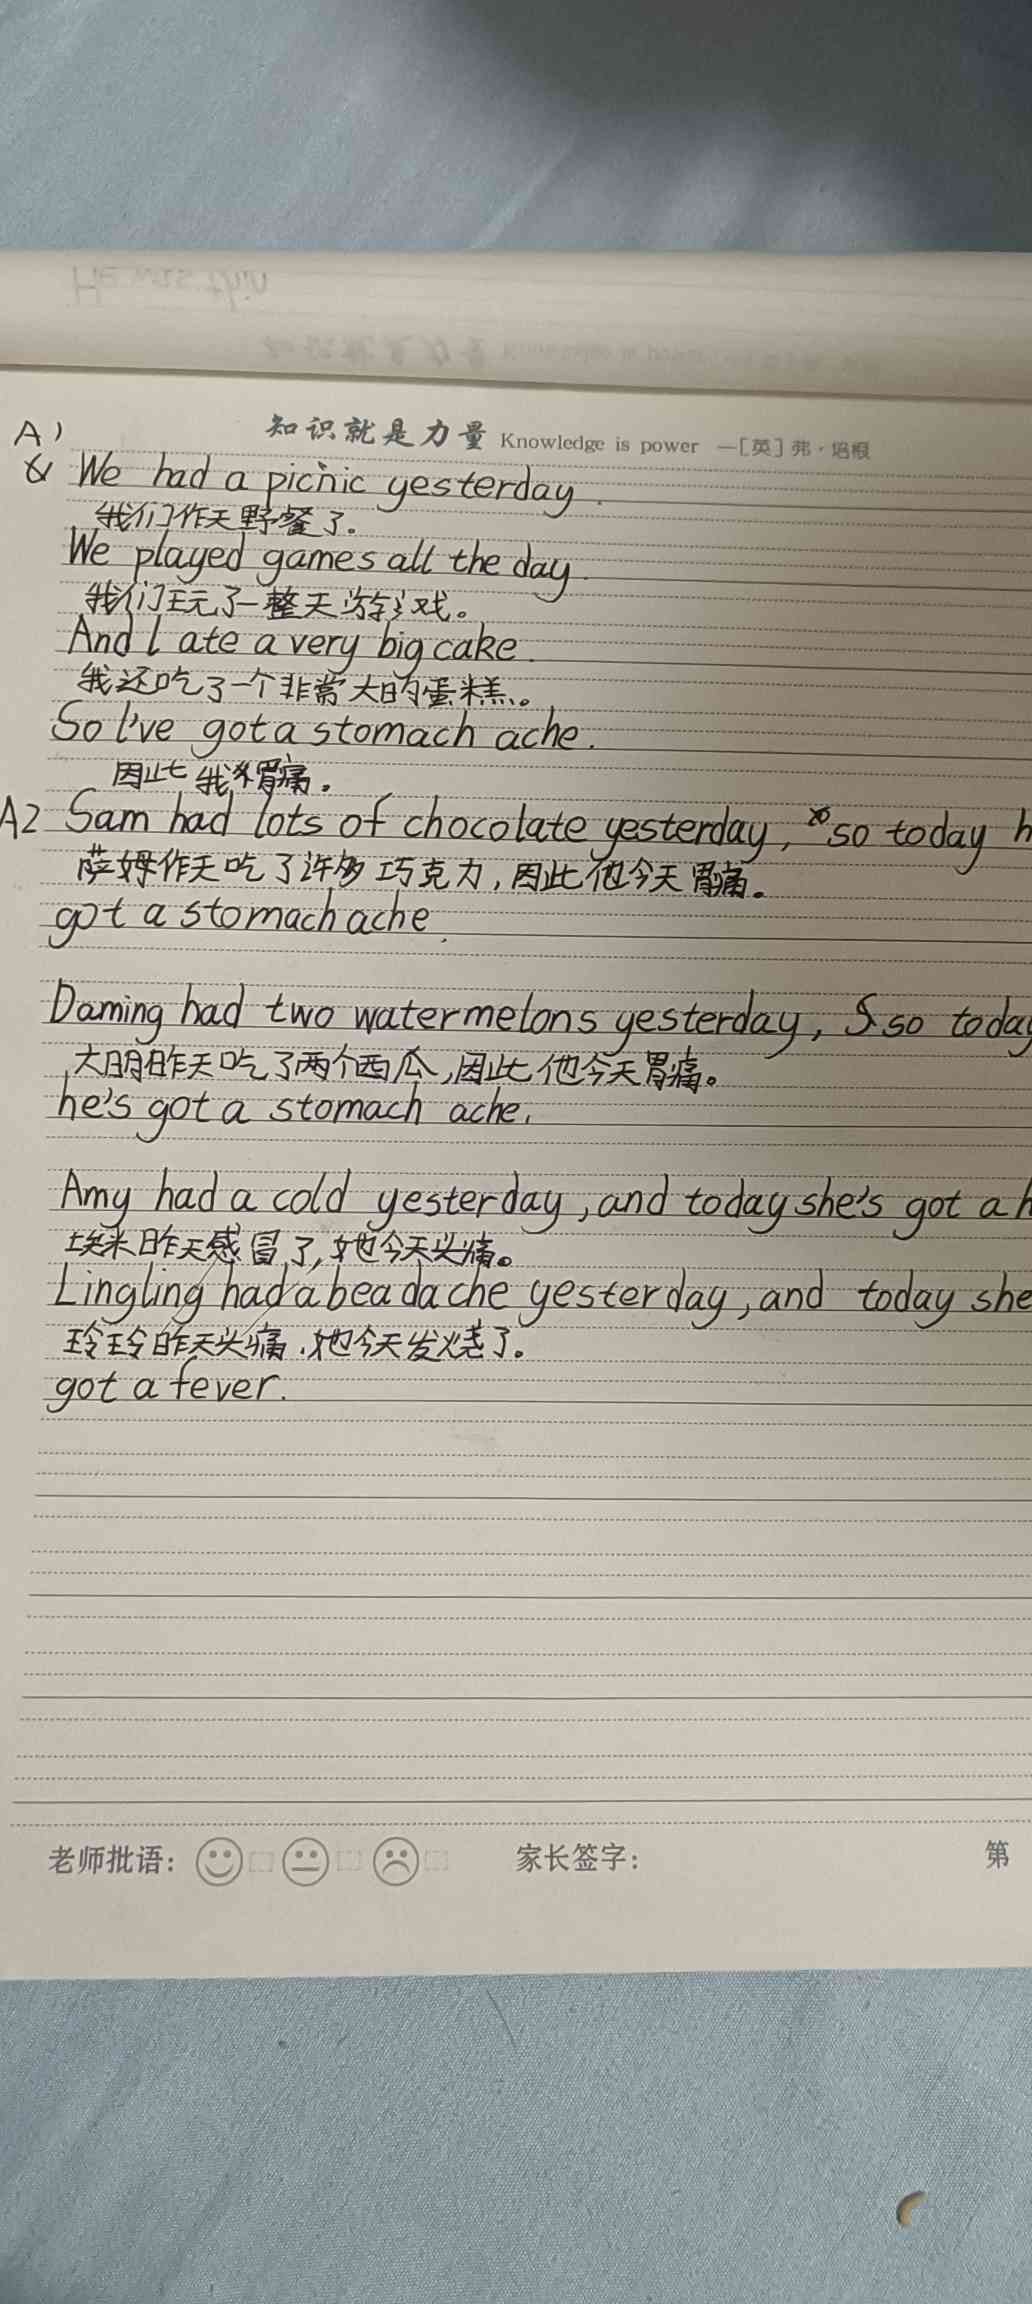 知识就是力量 Knowledge is power —[英]弗·培根
A1
We had a picnic yesterday.
我们作天野餐了。
We played games all the day.
我们玩了一整天游戏。
And I ate a very big cake.
我还吃了一个非常大的蛋糕。
So I've got a stomach ache.
因此我胃痛。
A2 Sam had lots of chocolate yesterday, so today
萨姆作天吃了许多巧克力,因此他今天胃痛。
got a stomach ache.
Daming had two watermelons yesterday, so today
大明昨天吃了两个西瓜,因此他今天胃痛。
he's got a stomach ache.
Amy had a cold yesterday, and today she's got a
埃米昨天感冒了,她今天头痛。
Lingling had a beadache yesterday, and today she
玲玲昨天头痛,她今天发烧了。
got a fever.
老师批语: 家长签字: 第